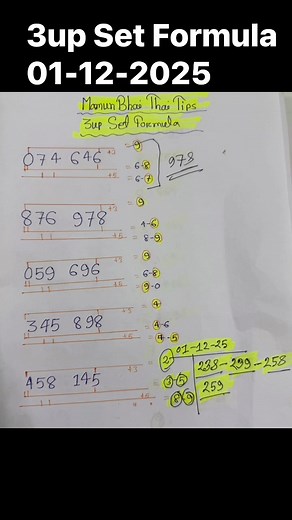 3up Set Formula
01-12-2025
Mamun Bhai Thai Tips
3up Set Formula
= 9
074 646 +3 = 6-8 978
+5 = 6-7
= 9
876 978 +3 = 4-6
+5 = 8-9
= 9
059 696 +3 = 6-8
+5 = 9-0
= 4
345 898 +3 = 4-6
+5 = 4-5
01-12-25
= 2
458 145 +3 238-299-258
+5 259
= 8-9